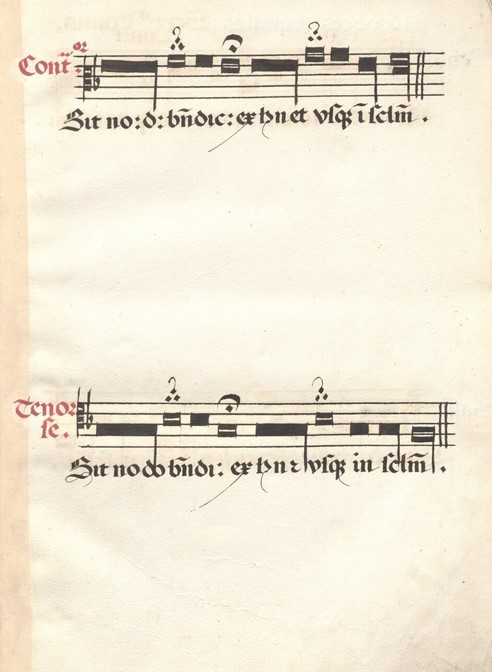 Cont.or
Sit no: d: bn̄dic: ex h n et vsq̢ ī sclm̄ .
Tenor
se .
Sit no do bn̄di: ex h n ꝛ vsq̢ in sclm̄ .